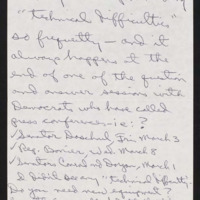 "technical difficulties"
so frequently - and it
always happens at the
end of one of the question
and answer session with
Democrats who have called
press conference - i.e.:?
✓ Senator Daschel Fri March 3
✓ Rep. Bonior Wed. March 8
✓ Senators Conrad Dorgan, March 1
I did see any "technical difficulty"
Do you need new equipment?